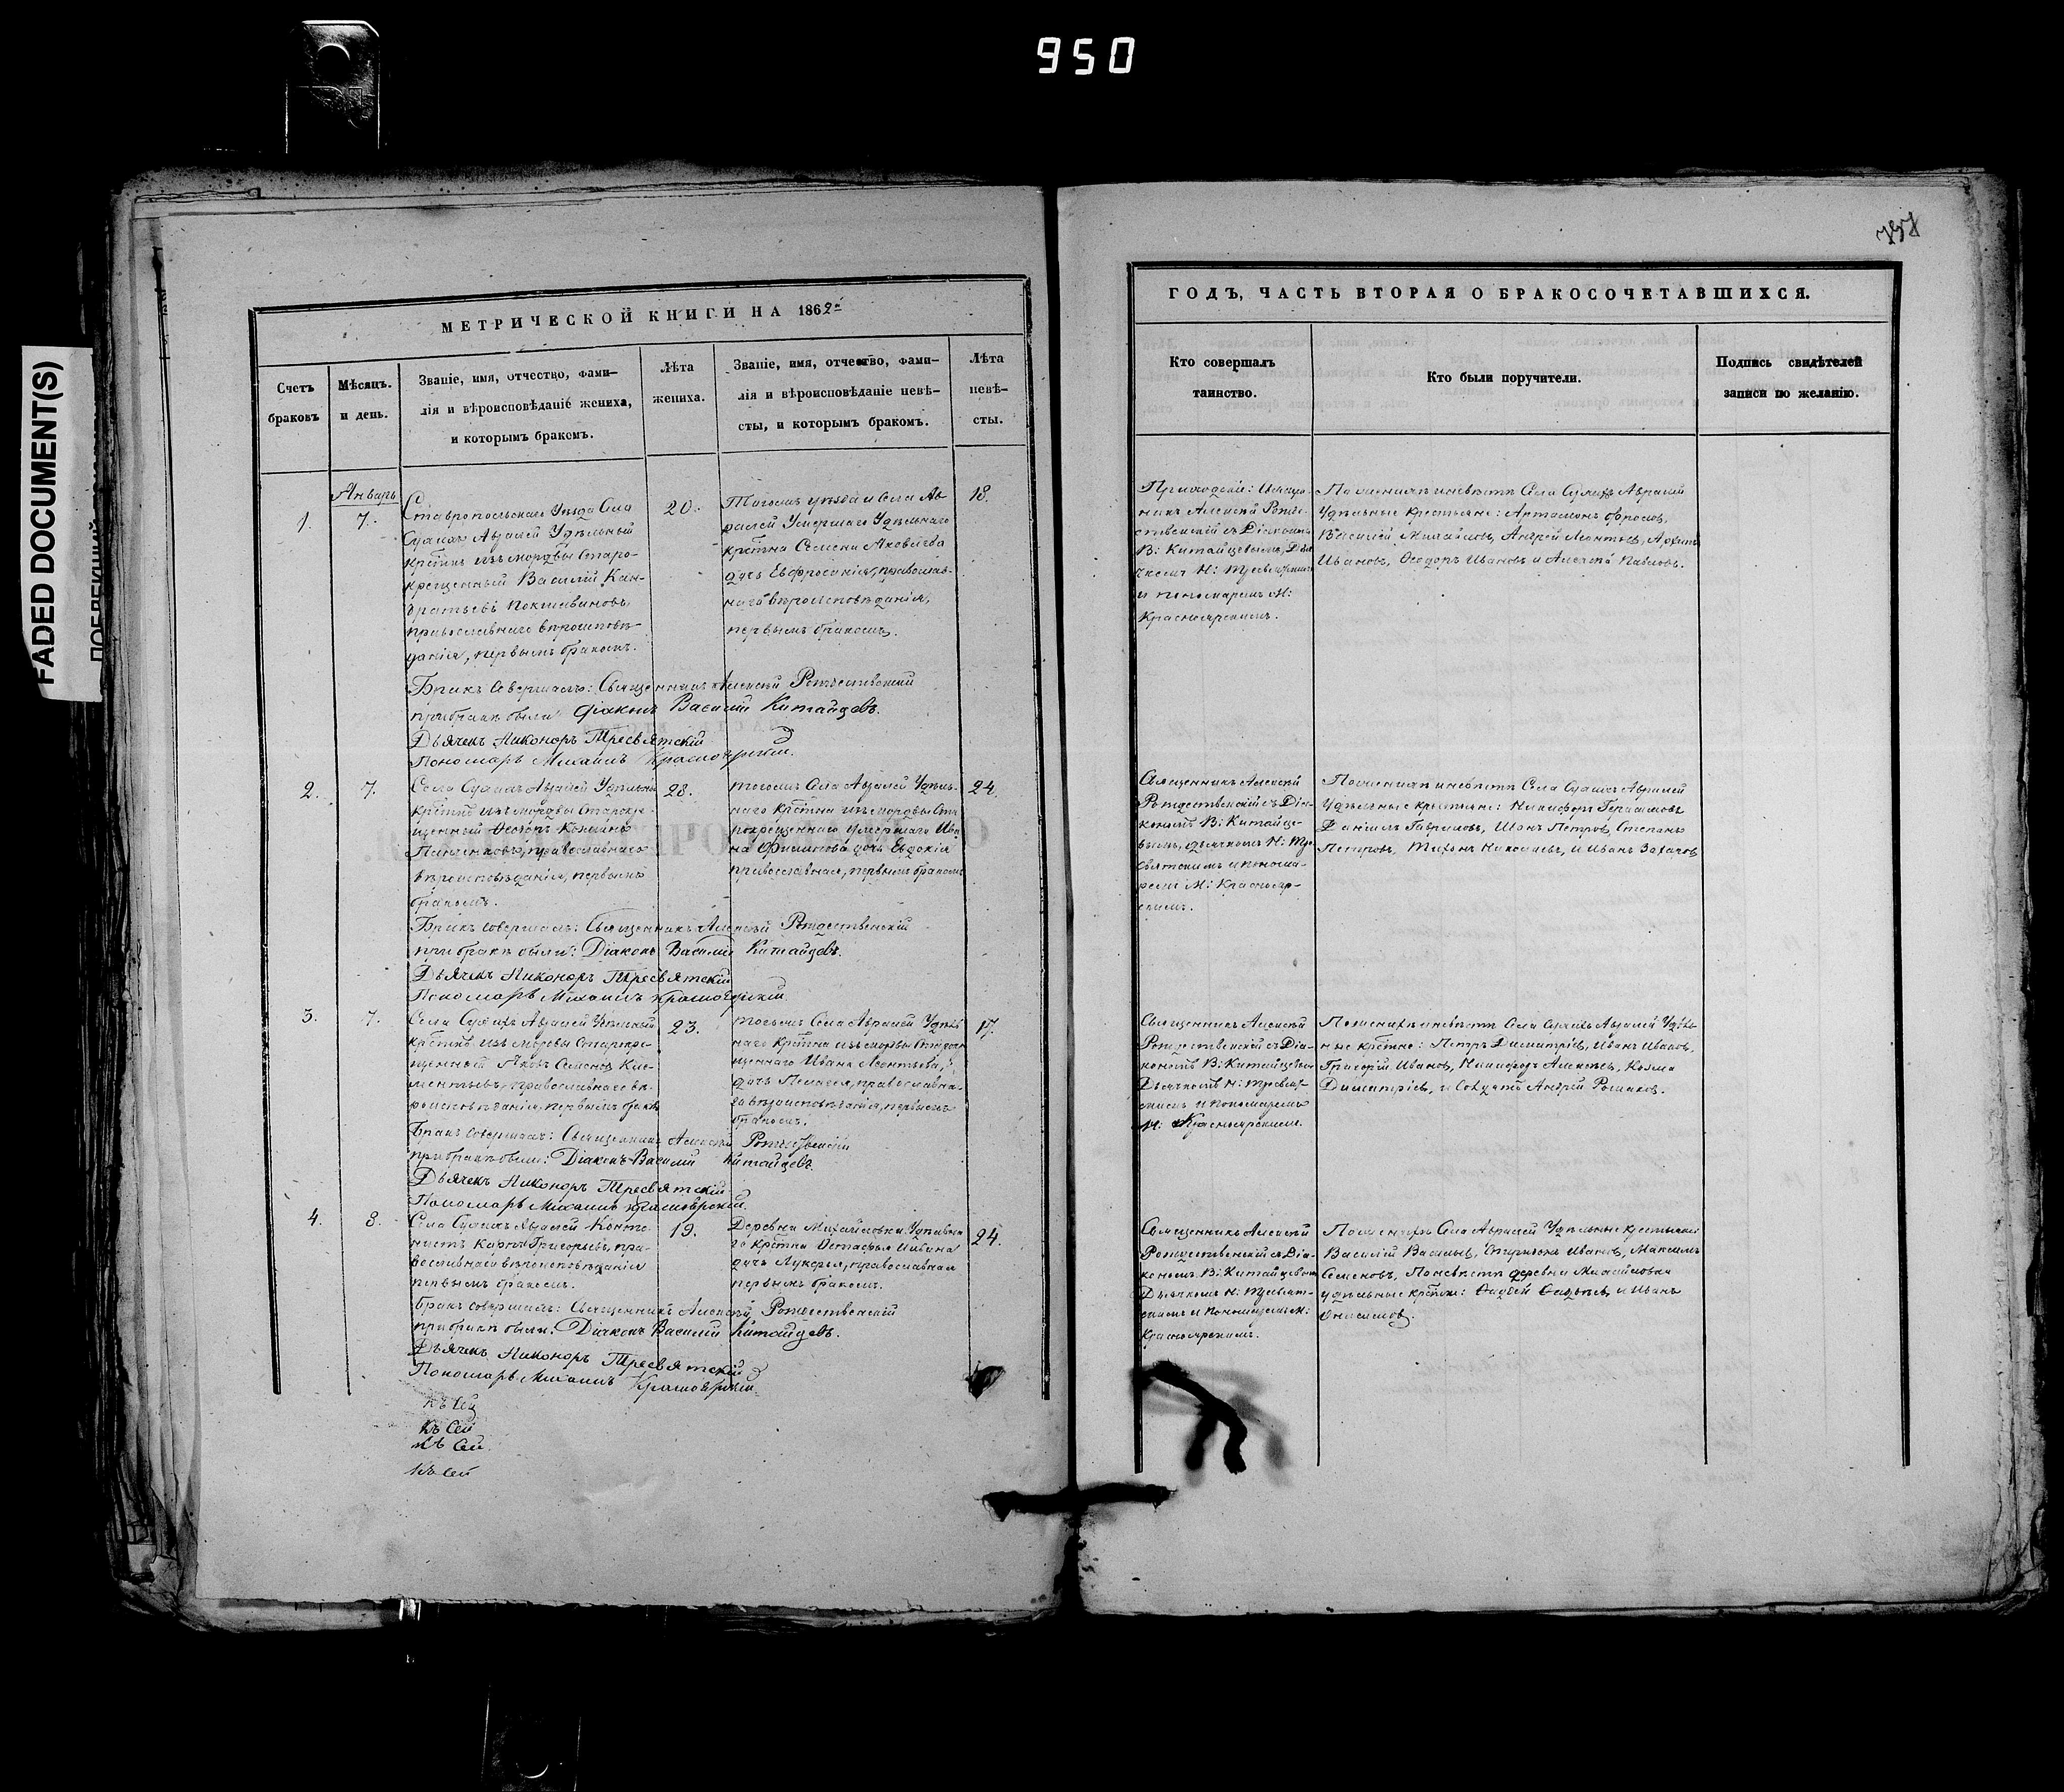 950
FADED DOCUMENT(S)
МЕТРИЧЕСКОЙ КНИГИ НА 1862
Счетъ браковъ
Мѣсяцъ. и день.
Званіе, имя, отчество, фами-
лія и вѣроисповѣданіе жениха,
и которымъ бракомъ.
Лѣта
жениха.
Званіе, имя, отчество, фами-
лія и вѣроисповѣданіе невѣ-
сты, и которымъ бракомъ.
Лѣта
невѣ-
сты.
Январь
1.
7.
Ставропольскаго Уѣзда Села
Авралей Удѣльный
изъ мордвы Старо-
крещенный Василій Кон-
дратьевъ
православнаго вѣроисповѣ-
данія, первымъ бракомъ.
20.
Тогожъ уѣзда и Села Ав-
ралей Умершаго Удѣльнаго
Семена Яковлева
дочь Евфросинія, православ-
наго вѣроисповѣданія,
первымъ бракомъ.
18.
Бракъ совершалъ: Священникъ Алексѣй Рождественскій
при бракѣ были: Діаконъ Василій Китайцевъ.
Дьячекъ Никоноръ Тресвятскій
Пономарь Михаилъ Красноярскій.
2.
7.
Села Авралей
изъ мордвы Старокре-
щенный
православнаго
вѣроисповѣданія, первымъ
бракомъ.
28.
тогожъ Села Авралей Удѣль-
наго изъ мордвы Ста-
рокрещеннаго умершаго Ива-
на Филипова дочь Евдокія
православная, первымъ бракомъ
24.
Бракъ совершалъ: Священникъ Алексѣй Рождественскій
при бракѣ были: Діаконъ Василій Китайцевъ.
Дьячекъ Никоноръ Тресвятскій
Пономарь Михаилъ Красноярскій.
3.
7.
Села Авралей Удѣльный
изъ мордвы Старокре-
щенный Яковъ Семеновъ Кле-
ментьевъ, православнаго вѣ-
роисповѣданія, первымъ бракомъ
23.
тогожъ Села Авралей Удѣль-
наго изъ мордвы
Ивана Леонтьева,
дочь Пелагея, православна-
го вѣроисповѣданія, первымъ
бракомъ.
17.
Бракъ совершалъ: Священникъ Алексѣй Рождественскій
при бракѣ были: Діаконъ Василій Китайцевъ.
Дьячекъ Никоноръ Тресвятскій
Пономарь Михаилъ Красноярскій.
4.
8.
Села Авралей
Карпъ Григорьевъ, пра-
вославнаго вѣроисповѣданія
первымъ бракомъ.
19.
Деревни Михайловки Удѣльна-
го
дочь Лукерья, православная
первымъ бракомъ.
24.
Бракъ совершалъ: Священникъ Алексѣй Рождественскій
при бракѣ были: Діаконъ Василій Китайцевъ.
Дьячекъ Никоноръ Тресвятскій
Пономарь Михаилъ Красноярскій
Къ Сей
Къ Сей
Къ Сей
Къ Сей
ГОДЪ, ЧАСТЬ ВТОРАЯ О БРАКОСОЧЕТАВШИХСЯ.
Кто совершалъ
таинство.
Кто были поручители.
Подпись свидѣтелей
записи по желанію.
Алексѣй Рожде-
ственскій съ Діакономъ
В: Китайцевымъ, Дья-
чкомъ Н: Тресвятскимъ
и пономаремъ М:
Красноярскимъ.
По женихѣ и невѣстѣ Села Авралей
Удѣльные Крестьяне: Артамонъ Фроловъ,
Василій Михайловъ, Андрей Леонтьевъ,
Ивановъ, Ѳеодоръ Ивановъ и Алексѣй Павловъ.
Священникъ Алексѣй
Рождественскій съ Діа-
кономъ В: Китайце-
вымъ, дьячкомъ Н: Тре-
святскимъ и понома-
ремъ М: Краснояр-
скимъ.
По женихѣ и невѣстѣ Села Авралей
Удѣльные крестьяне: Никифоръ Герасимовъ
Даніилъ Гавриловъ, Иванъ Петровъ, Степанъ
Петровъ, Тихонъ Николаевъ, и Иванъ Захаровъ
Священникъ Алексѣй
Рождественскій съ Діа-
кономъ В: Китайцевымъ
Дьячкомъ Н: Тресвят-
скимъ и пономаремъ
М: Красноярскимъ.
По женихѣ и невѣстѣ Села Авралей Удѣль-
ные: Петръ Димитріевъ, Иванъ Ивановъ,
Григорій Ивановъ, Никифоръ Алексѣевъ, Козма
Димитріевъ, и Солдатъ Андрей Романовъ.
Священникъ Алексѣй
Рождественскій съ Діа-
кономъ В: Китайцевымъ
Дьячкомъ Н: Тресвят-
скимъ и Пономаремъ М:
Красноярскимъ.
По женихѣ Села Авралей Удѣльные крестьяне
Василій Васильевъ, Ивановъ, Максимъ
Семеновъ, По невѣстѣ деревни Михайловки
удѣльные: и Иванъ